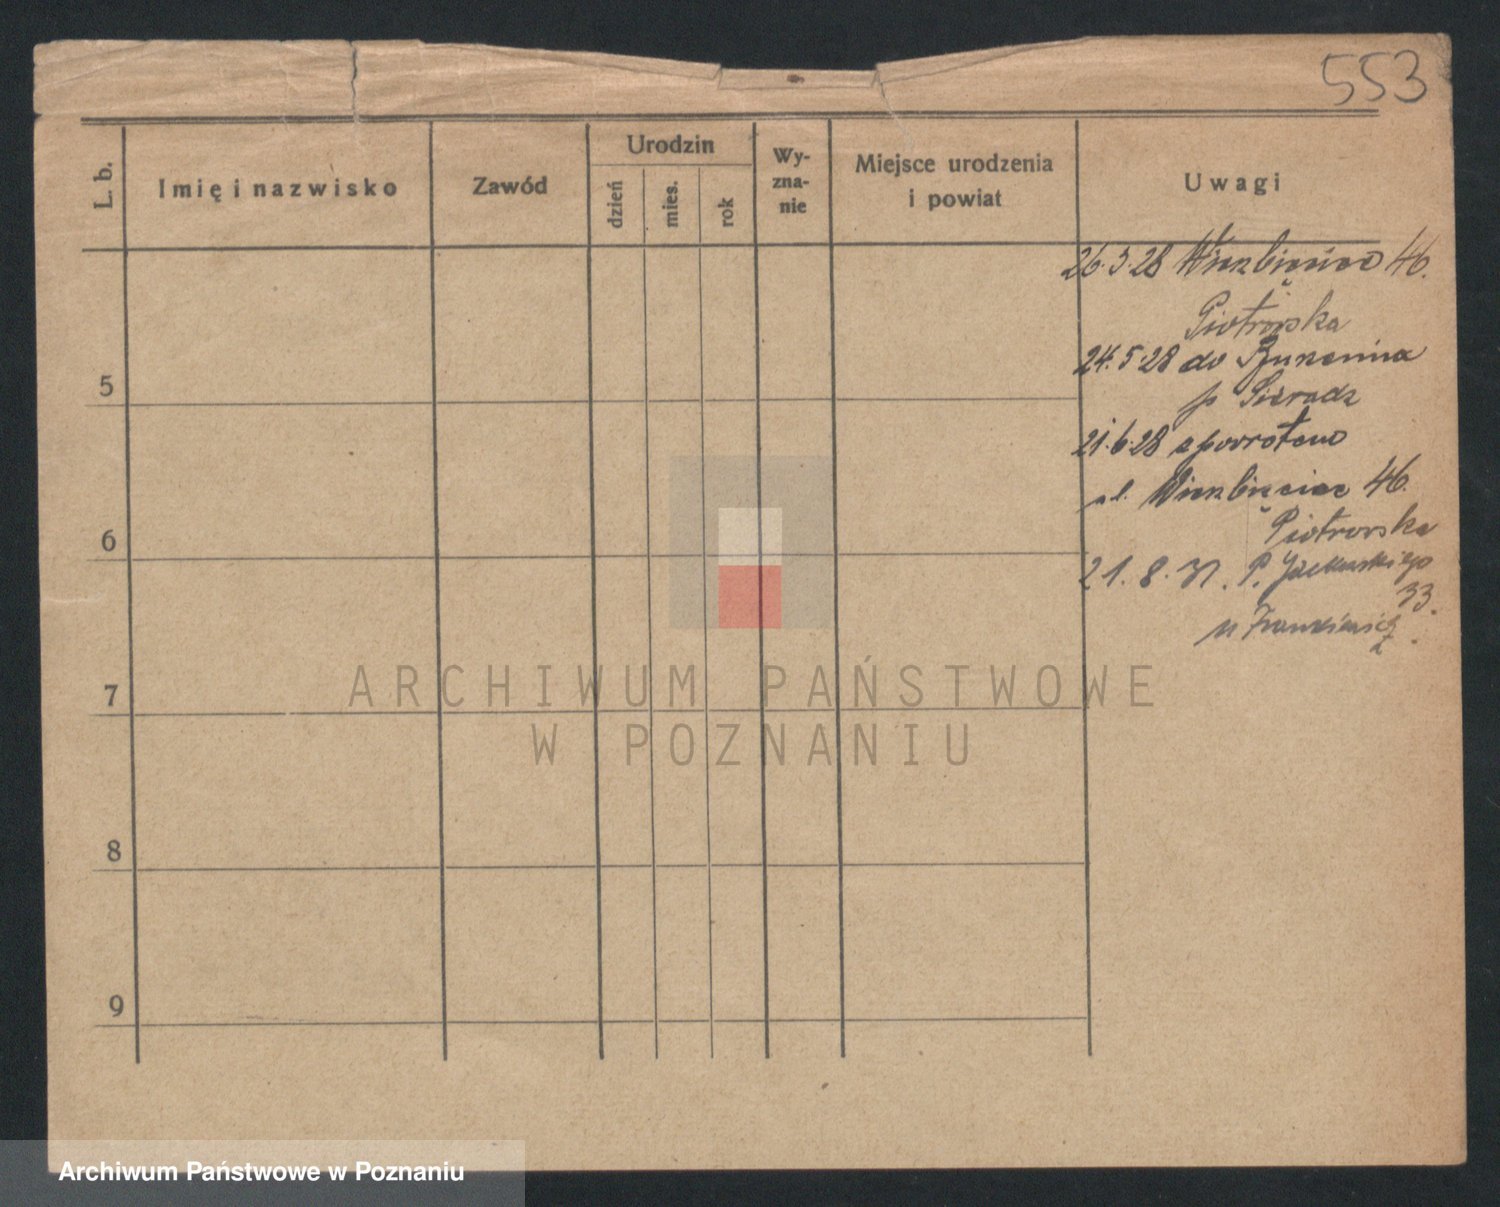 553
L. b.
Imię i nazwisko
Zawód
Urodzin
dzień
mies.
rok
Wy-
zna-
nie
Miejsce urodzenia
i powiat
Uwagi
26.3.28 Wierzbięcice 46.
Piotrowska
24.5.28 do
p Sieradz
5
21.6.28 spowrotem
ul. Wierzbięcice 46.
Piotrowska
6
21.8.31. P. Jackowskiego
33.
u
ARCHIWUM PAŃSTWOWE
W POZNANIU
7
8
9
Archiwum Państwowe w Poznaniu